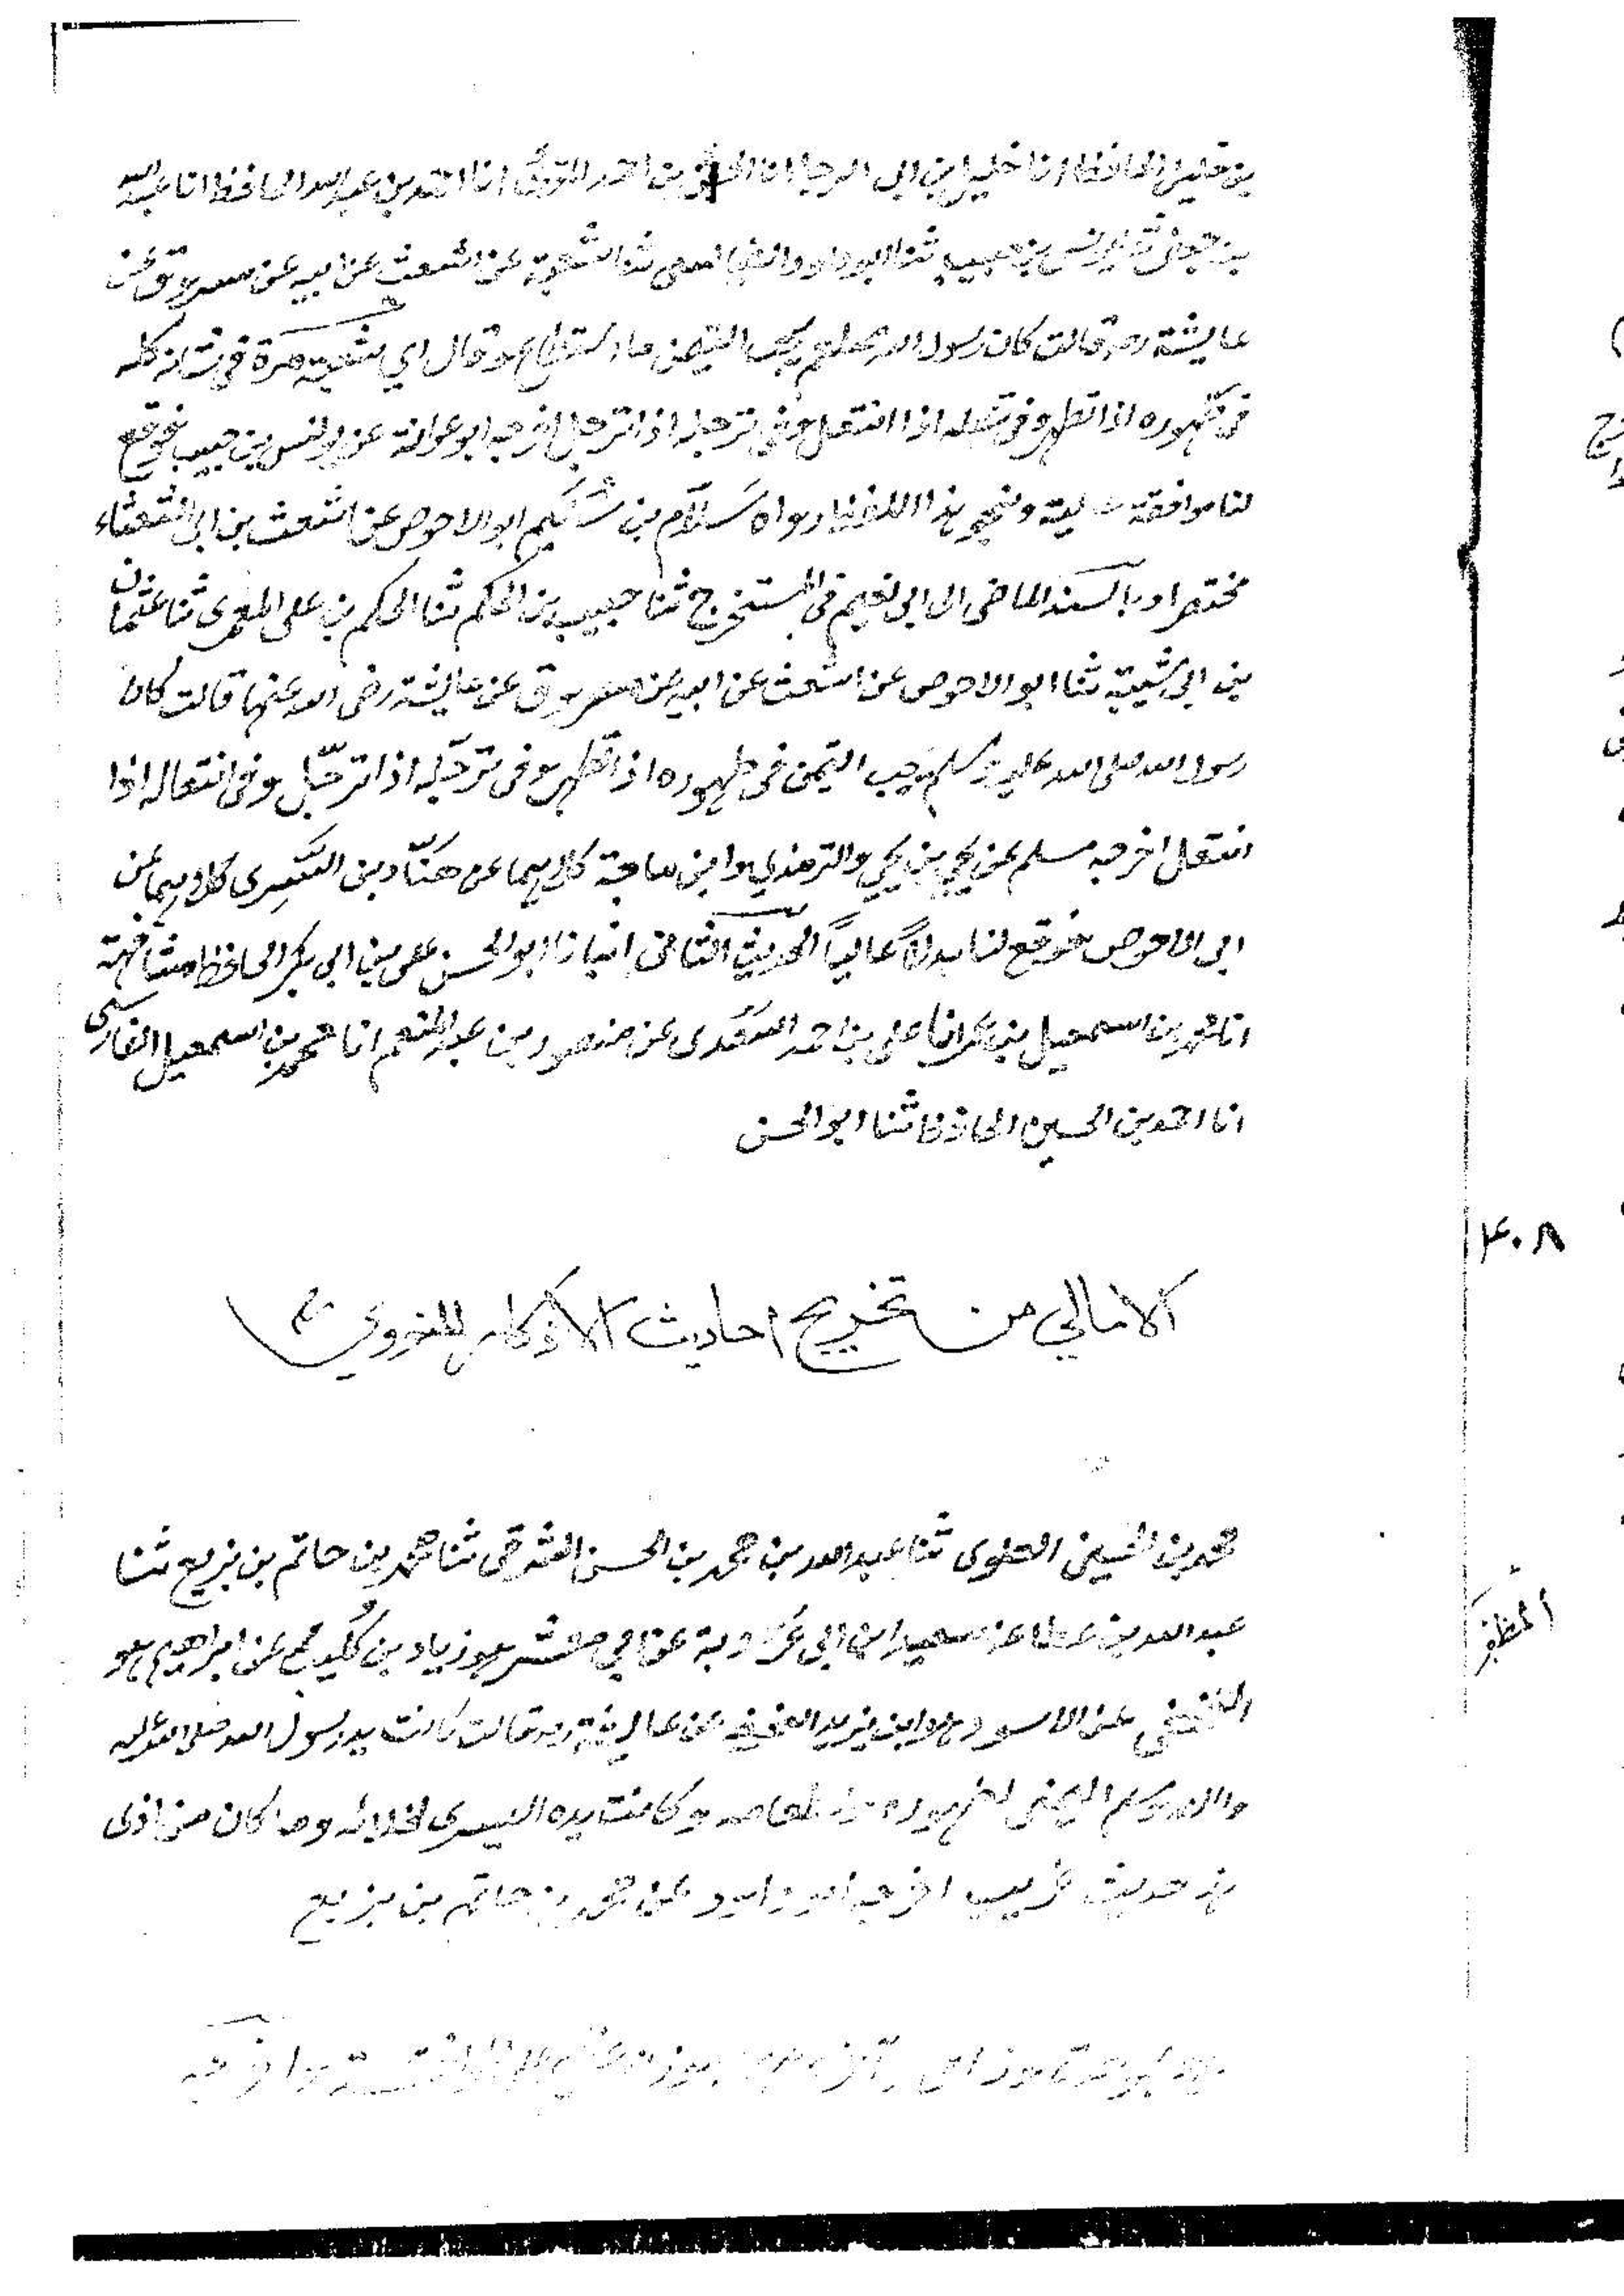 بن خليل الحافظ انا خليل بن ابى الرجا انا الحسن بن احمد المقرى انا احمد بن عبد الله الحافظ انا عبد الله
بن جعفر ثنا يونس بن حبيب ثنا ابو داود الطيالسى ثنا شعبة عن اشعث عن ابيه عن مسروق عن
عايشة رضـ قالت كان رسول الله صلعم يحب التيمن ما استطاع وقال اي شعبة مرة فى شانه كله
فى طهوره اذا تطهر وفى تنعله اذا انتعل وفى ترجله اذا ترجل اخرجه ابو عوانة عن يونس بن حبيب فوقع
لنا موافقة عالية وبنحو هذا اللفظ رواه سَلّام بن سُلَيم ابو الاحوص عن اشعث بن ابى الشعثاء
مختصرا وبالسند الماضى الى ابى نعيم فى المستخرج ثنا حبيب بن الحكم ثنا الحكم بن على المعمرى ثنا عثمان
بن ابى شيبة ثنا ابو الاحوص عن اشعث عن ابيه عن مسروق عن عايشة رضى الله عنها قالت كان
رسول الله صلى الله عليه وسلم يحب التيمن فى طهوره اذا تطهر وفى ترجّله اذا ترجّل وفى انتعاله اذا
انتعل اخرجه مسلم عن يحيى بن يحيى والترمذي وابن ماجة كلاهما عن هنّاد بن السَّرِى كلاهما عن
ابى الاحوص فوقع لنا بدلاً عالياً الحديث الثانى انبانا ابو الحسن على بن ابى بكر الحافظ مشافهة
انا محمد بن اسمعيل بن عمر انا على بن احمد السَعدى عن منصور بن عبد المنعم انا محمد بن اسمعيل الفارسى
انا احمد بن الحسين الحافظ ثنا ابو الحسن
٤٠٨
الامالي من تخريج احاديث الاذكار للنووي
محمد بن الحسين العلوى ثنا عبد الله بن محمد بن الحسن الشرقى ثنا محمد بن حاتم بن بزيع ثنا
المظفر
عبد الله بن عطا عن سعيد ابن ابى عَرُوبة عن ابي معشر هو زياد بن كُليب عن ابراهيم هو
النخعى عن الاسود هو ابن يزيد النخعى عن عايشة رضـ قالت كانت يد رسول الله صلى الله عليه
واله وسلم اليمنى لطهوره ولطعامه وكانت يده اليسرى لخلائه وما كان من اذى
هذ حديث غريب اخرجه ابو داود عن محمد بن حاتم بن بزيع